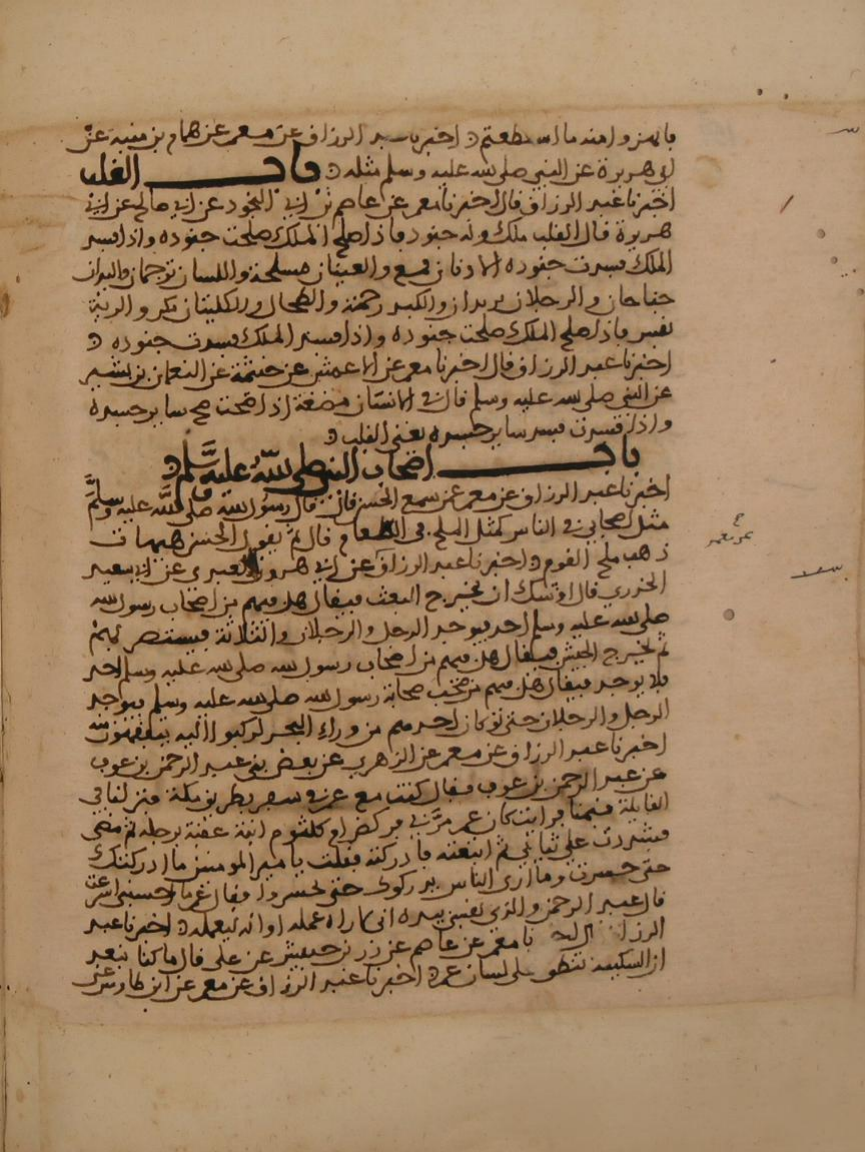 فايتمروا منه ما استطعتم اخبرنا عبد الرزاق عن معمر عن همام بن منبه عن
ابي هريرة عن النبي صلى الله عليه وسلم مثله باب القلب
اخبرنا عبد الرزاق قال اخبرنا معمر عن عاصم بن ابي النجود عن ابي صالح عن ابي
هريرة قال القلب ملك وله جنود فاذا صلح الملك صلحت جنوده واذا فسد
الملك فسدت جنوده الاذنان قمع والعينان مسلحة واللسان ترجمان واليدان
جناحان والرجلان بريدان والكبد رحمة والطحال والكليتان مكر والرية
نفس فاذا صلح الملك صلحت جنوده واذا فسد الملك فسدت جنوده
اخبرنا عبد الرزاق قال اخبرنا معمر عن الاعمش عن خيثمة عن النعمان بن بشير
عن النبي صلى الله عليه وسلم قال في الانسان مضغة اذا صحت صح سايرجسده
واذا فسدت فسد سايرجسده يعني القلب
باب اصحاب النبي صلى الله عليه وسلم
اخبرنا عبد الرزاق عن معمر عن من سمع الحسن قال قال رسول الله صلى الله عليه وسلم
مثل اصحابي في الناس كمثل الملح في الطعام قال ثم يقول الحسن هيهات
ذهب ملح القوم اخبرنا عبد الرزاق عن ابي هرون العبدي عن ابي سعيد
الخدري قال اوشك ان يخرج البعث فيقال هل فيهم من اصحاب رسول الله
صلى الله عليه وسلم احد فيوجد الرجل والرجلان والثلاثة فيستنصر بهم
ثم يخرج الجيش فيقال هل فيهم من اصحاب رسول الله صلى الله عليه وسلم احد
فلا يوجد فيقال هل فيهم من صحب صحابة رسول الله صلى الله عليه وسلم فيوجد
الرجل والرجلان حتى لو كان احدهم من وراء البحر لركبوا اليه يتفقهون منه
اخبرنا عبد الرزاق عن معمر عن الزهري عن بعض بني عبد الرحمن بن عوف
عن عبد الرحمن بن عوف فقال كنت مع عمر في سفر بطريق مكة فنزلنا في
القايلة
فشددت علي ثيابي ثم اتبعته فادركته فقلت يا امير المومنين ما ادركتك
حتى حسرت وما ارى الناس يدركوك حتى يحسروا فقال
قال عبد الرحمن والذي نفسي بيده اني لاراه عمله اوانه ليعمله اخبرنا عبد
الرزاق معمر عن عاصم عن زر بن حبيش عن علي قال ما كنا نبعد
ان السكينة تنطق على لسان عمر اخبرنا عبد الرزاق عن معمر عن ابن طاوس عن